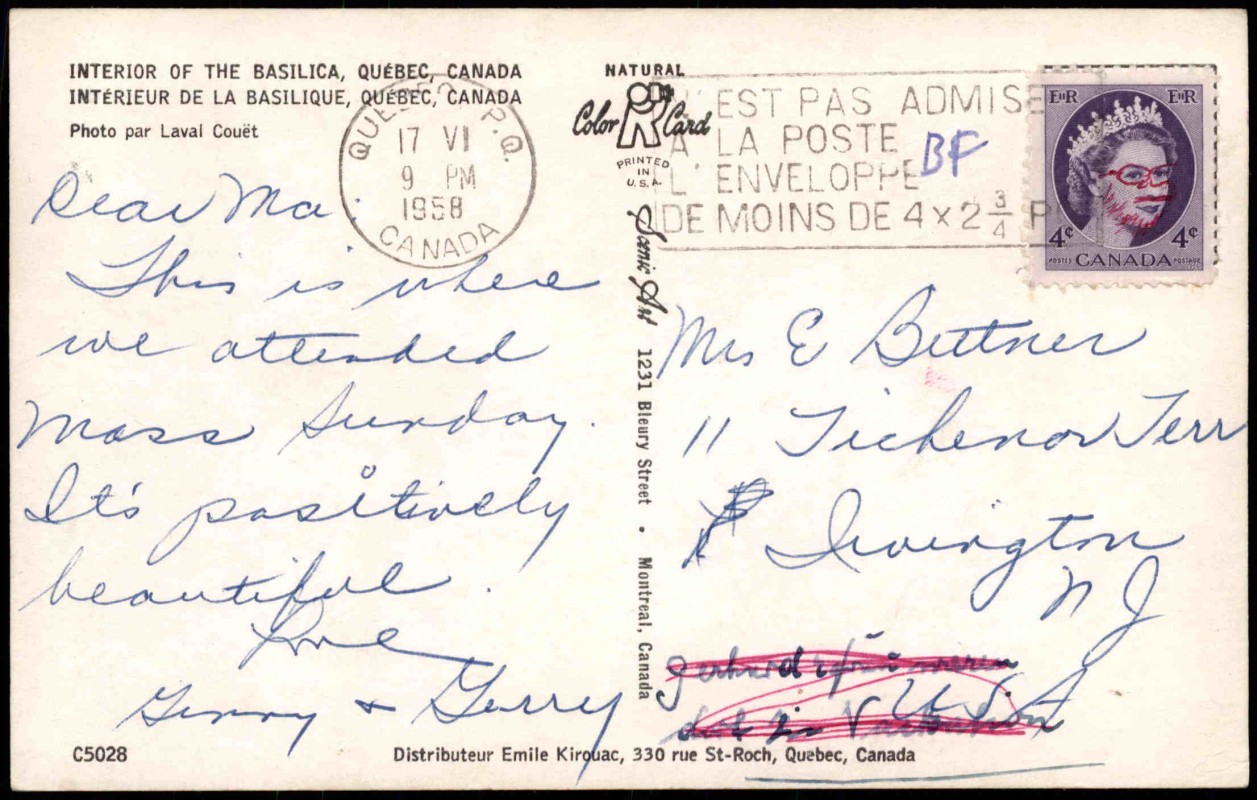 INTERIOR OF THE BASILICA, QUÉBEC, CANADA
INTÉRIEUR DE LA BASILIQUE, QUÉBEC, CANADA
Photo par Laval Couët
Dear Ma.
This is where
we attended
Mass Sunday.
It's positively
beautiful.
Love
Ginny & Gerry
C5028
QUEBEC P.Q.
17 VI
9 PM
1958
CANADA
NATURAL
Color Card
PRINTED
IN
U.S.A.
Scenic Art 1231 Bleury Street • Montreal, Canada
N'EST PAS ADMISE
A LA POSTE
L'ENVELOPPE
DE MOINS DE 4 x 2 3/4 P
BF
EIIR EIIR
4¢ 4¢
POSTES CANADA POSTAGE
Mrs E Bittner
11 Tichenor Terr
Irvington
N J
U S A
Distributeur Emile Kirouac, 330 rue St-Roch, Quebec, Canada